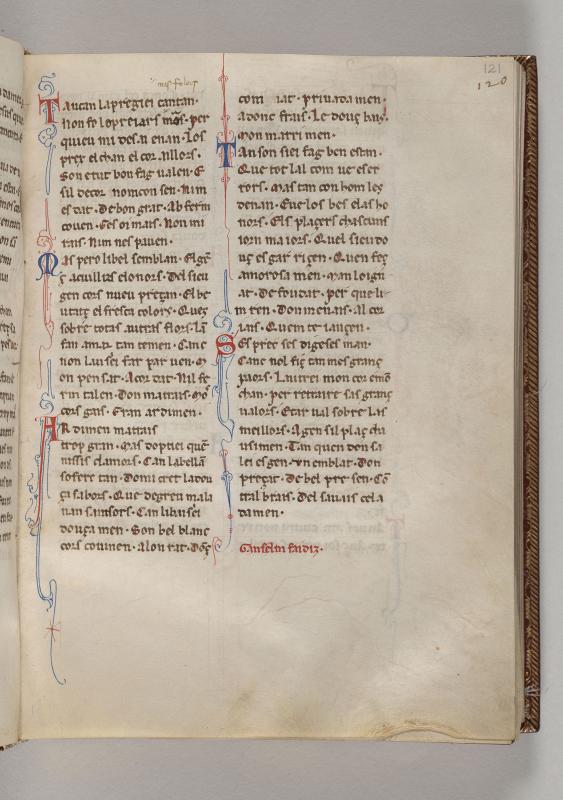 121
120
Tautan lapregiei cantan·
non fo lo preiars mos· per
quieu mi des·n enan· Los
prez el chan el cor· Nillors·
Son etut bon fag ualen· E
sil decor nom con sen· Nim
es dat· De bon grat· Ab ferm
couen· Ges oi mais· Non mi
rais· Nim nes pauen·
Mas pero libel semblan·
acuillirs el onors· Del sieu
gen cors nueu prezan· El be
utatz el fresca colors· Quez
sobre totas autras flors· La
fan amar tan temen· Canc
non lausei far par uen·
on pen sat· Acor dat· Nil fe
rin talen· Don maitrais·
cors gais· Eran ar dimen·
Ar dimen mattais
trop gran· Mas doptiei
nissis clamors· Can labella
sofere tan· Domi cret la dou
za sabors· Que degreu mala
uan santors· Can libaisei
douza men· Son bel blanc
cors couinen· Alon rat· Doz
com iat· priuada men·
adonc frais· Le douz bais·
Mon marri men·
Tan son siei fag ben estan·
Que tot lal com ueser
rors· Mas tan con hom lez
denan· Eue los bes elas ho
nors· Els plazers chascuns
iorn maiors· Quel sieu do
uz esgar rizen· Quen fez
amorosa men· Man loign
at· De foudat· per que li
m ren· Don menais· Al cor
ians· Quem te iauzen·
Ses prec ses digesel man·
Canc nol fiz tan mes granz
paors· Lautrei mon cor
chan· per retraire sas granz
ualors· Etar ual sobre las
meillors· A gen sil plaz cha
usimen· Tan quen don sa
lei es gen· Don
prezat· De bel pre sen·
tral brais· Del sauais cela
damen·
Ganselm faidiz·